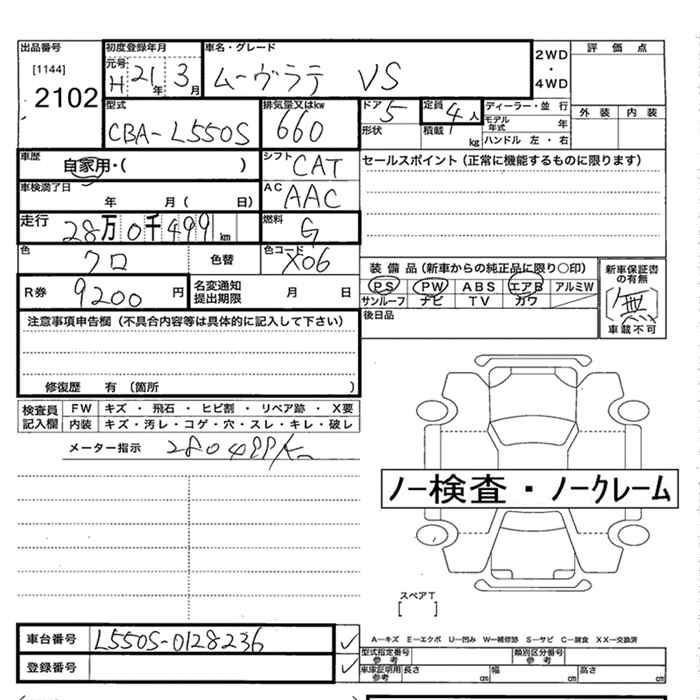 出品番号 初度登録年月 車名・グレード 2WD・4WD 評価点
[1144] 元号 H 21年 3月 ムーヴラテ VS
2102
型式 排気量又はkw ドア 5 定員 4人 ディーラー・並行 外装 内装
CBA-L550S 660 形状 積載 kg モデル年式 年
ハンドル 左・右
車歴 自家用・( ) シフト CAT セールスポイント(正常に機能するものに限ります)
車検満了日 年 月( 日) AC AAC
走行 28万0千499km 燃料 G
色 クロ 色替 色コード X06 装備品(新車からの純正品に限り○印) 新車保証書の有無
R券 9200円 名変通知提出期限 月 日 PS PW ABS エアB アルミW 無
サンルーフ ナビ TV カワ 車載不可
注意事項申告欄(不具合内容等は具体的に記入して下さい) 後日品
修復歴 有 (箇所 )
検査員記入欄 FW キズ・飛石・ヒビ割・リペア跡・X要
内装 キズ・汚レ・コゲ・穴・スレ・キレ・破レ
メーター指示 280499K
ノー検査・ノークレーム
スペアT
[ ]
車台番号 L550S-0128236 ✓ A―キズ E―エクボ U―凹み W―補修跡 S―サビ C―腐食 XX―交換済
登録番号 ✓ 型式指定番号 参考 類別区分番号 参考
車庫証明用 参考 長さ cm 幅 cm 高さ cm